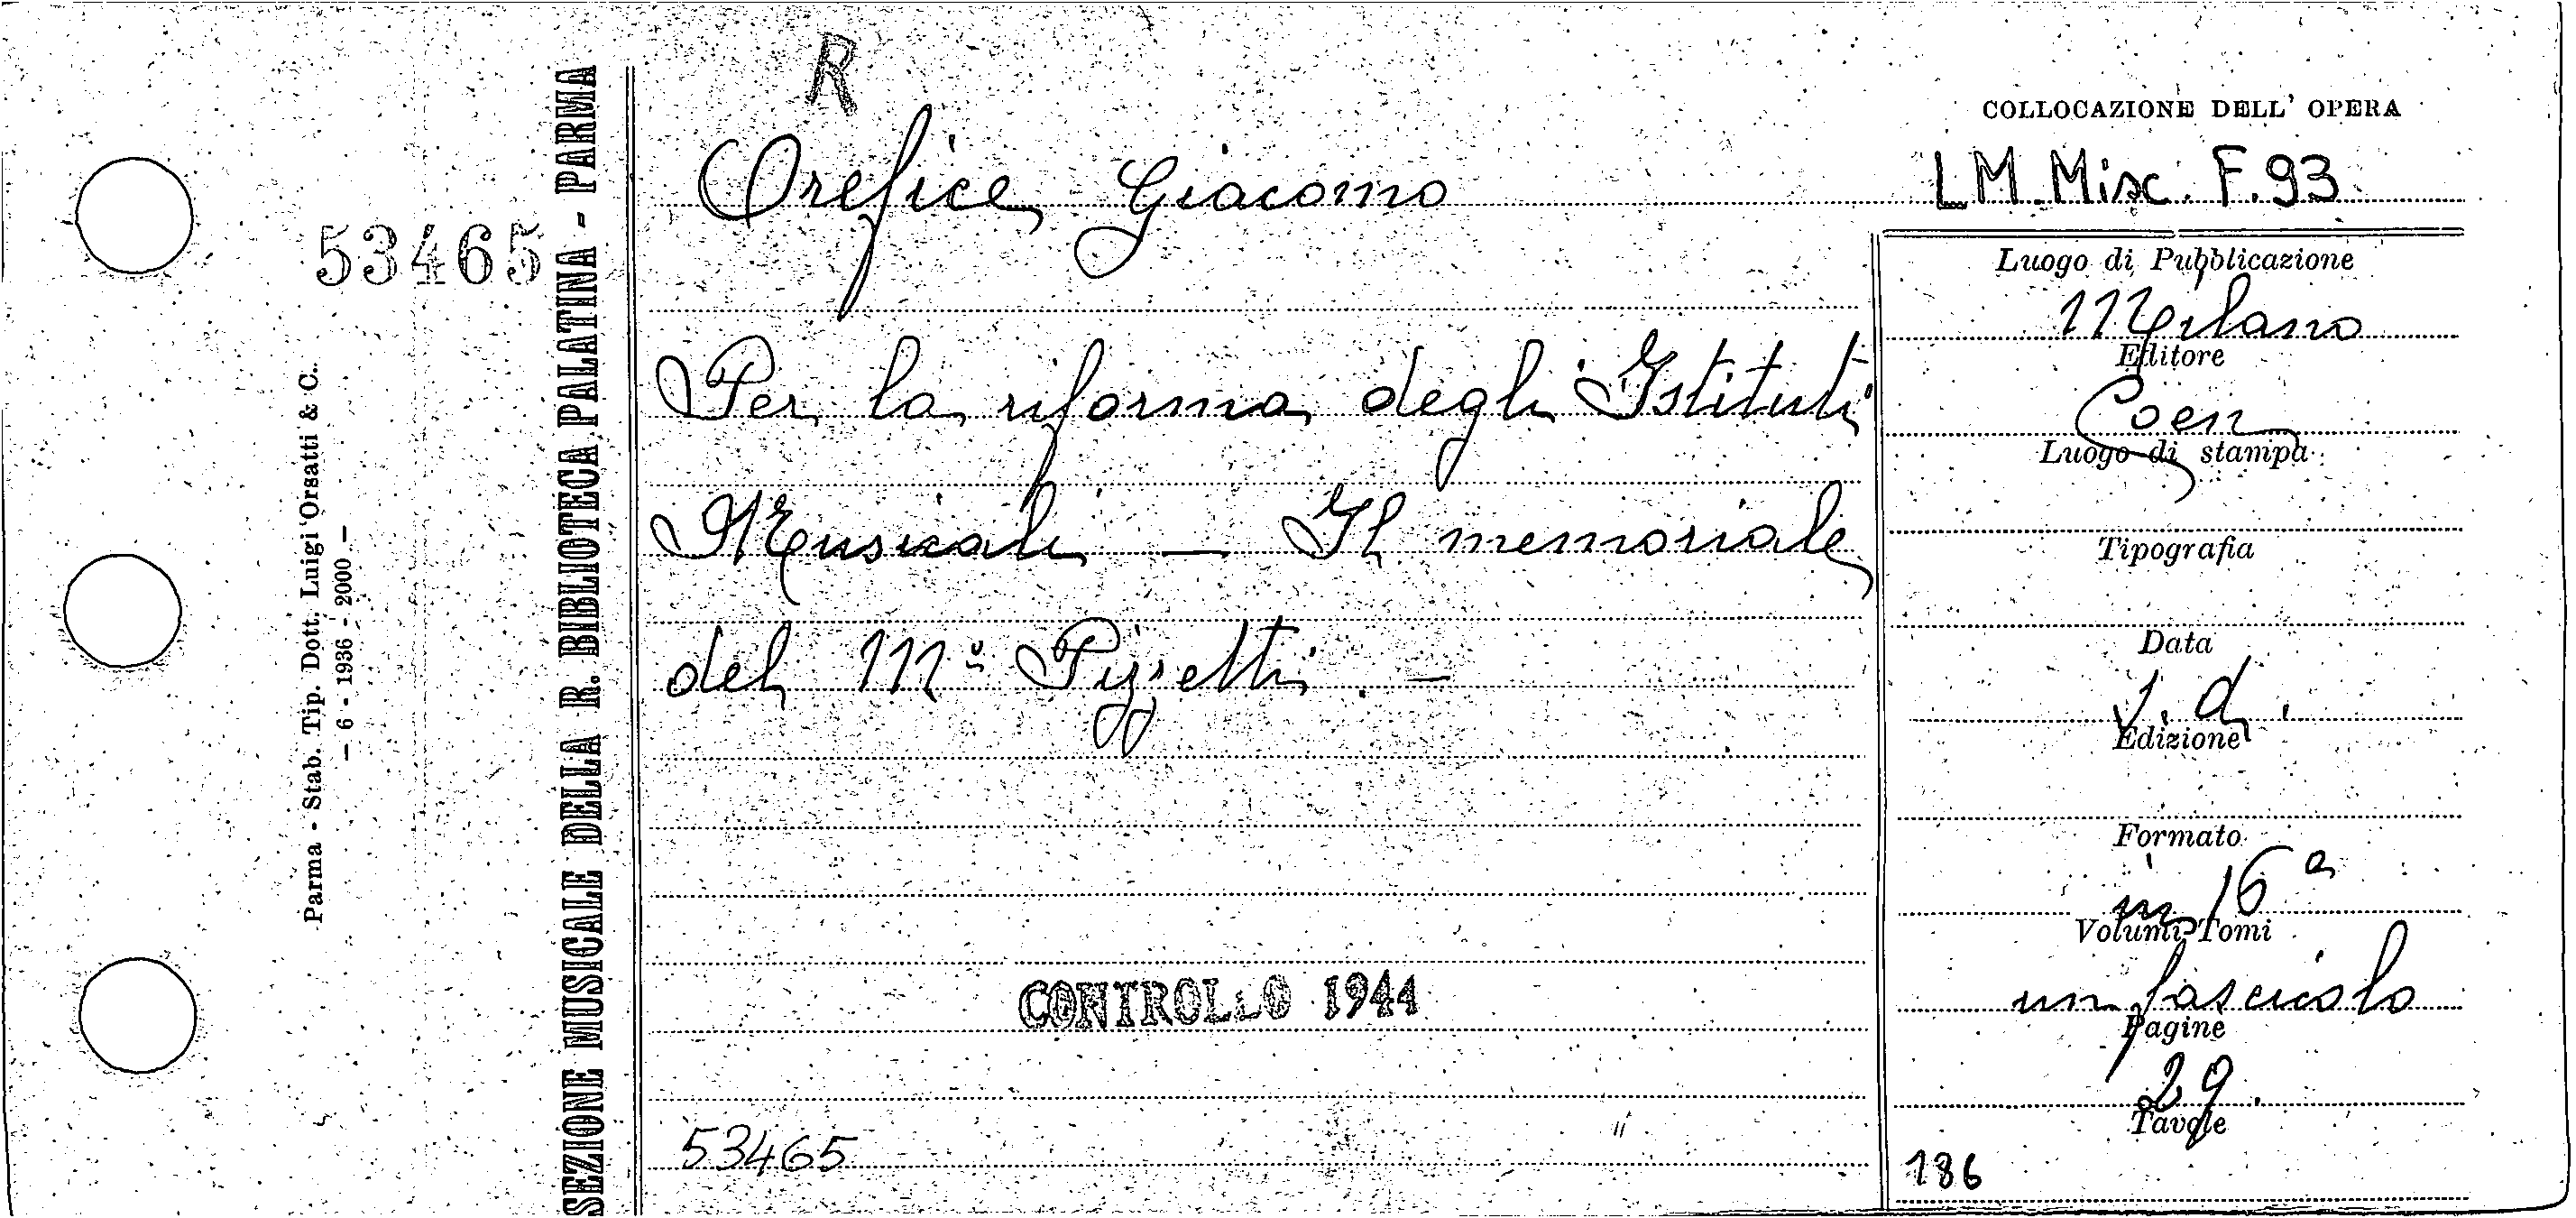 R
Orefice Giacomo
Per la riforma degli Istituti
Musicali — Il memoriale
del Mº Pizzetti. —
CONTROLLO 1944
53465
COLLOCAZIONE DELL' OPERA
LM. Misc. F. 93
Luogo di Pubblicazione
Milano
Editore
Coen
Luogo di stampa
Tipografia
Data
s. d.
Edizione
Formato
in 16º
Volumi-Tomi
un fascicolo
Pagine
29.
Tavole
186
53465
Parma - Stab. Tip. Dott. Luigi Orsatti & C.
— 6 - 1936 - 2000 —
SEZIONE MUSICALE DELLA R. BIBLIOTECA PALATINA - PARMA